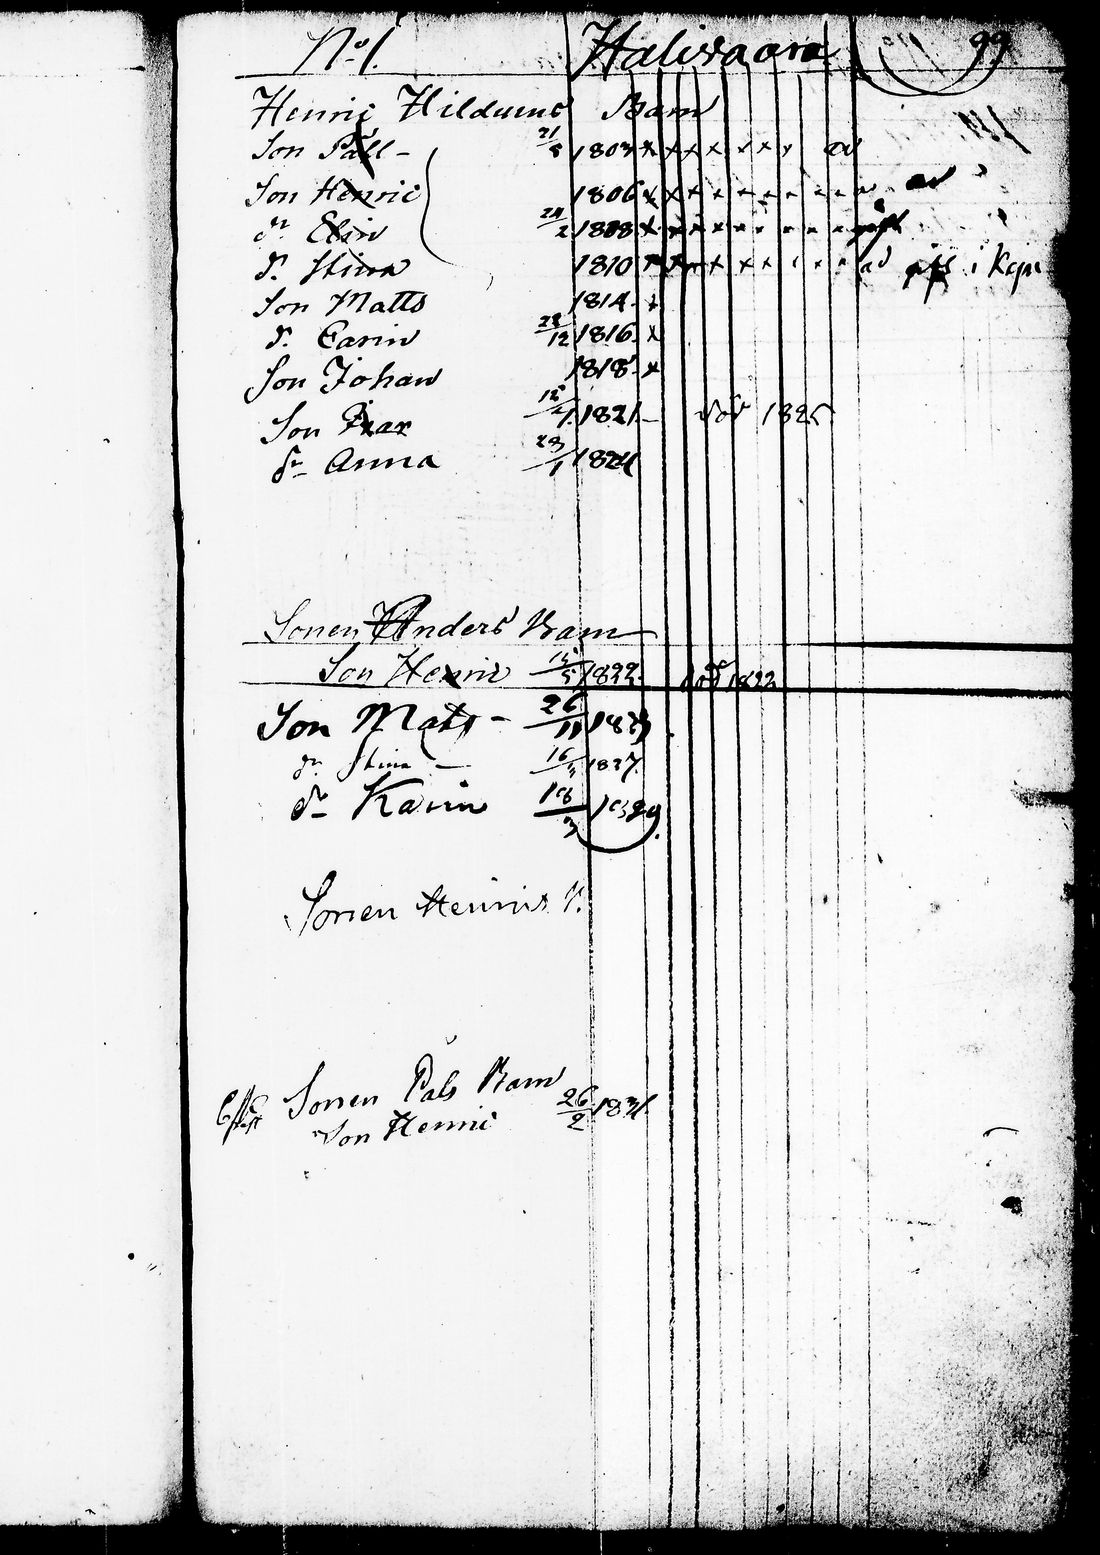 No 1. Halivaara 99
Henric Hilduns Barn
Son Påll - 21/8 1803 x x x x x x x
Son Henric 1806 x x x x x x x
dr Elin 24/2 1808 x x x x x x x
dr. Stina 1810 x x x x x x x i Kejn
Son Matts 1814 - x
dr. Carin 28/12 1816. x
Son Johan 1818 - x
Son Pear 12/4 1821 - död 1825
dr Anna 23/1 1824
Sonen Anders Barn
Son Henric 15/5 1822. död 1822
Son Mats - 26/11 1823
dr Stina - 16/11 1827.
dr Karin 18/3 1829.
Sonen Henrics
Sonen Påls Barn
Son Henric 26/2 1831.